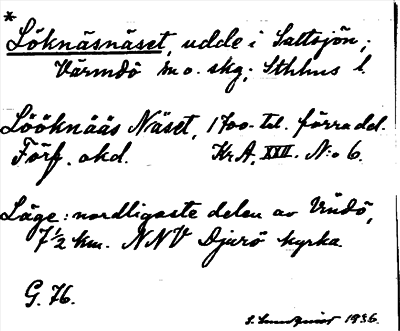 *
Löknäsnäset, udde i Saltsjön;
Värmdö m o. skg; Sthlms l.
Lööknääs Näset, 1700-tal. förra del.
Förf. okd. Kr A, XIII. N:o 6.
Läge: nordligaste delen av Vindö,
7 1/2 km. NNV Djurö kyrka.
G. 76.
1936.